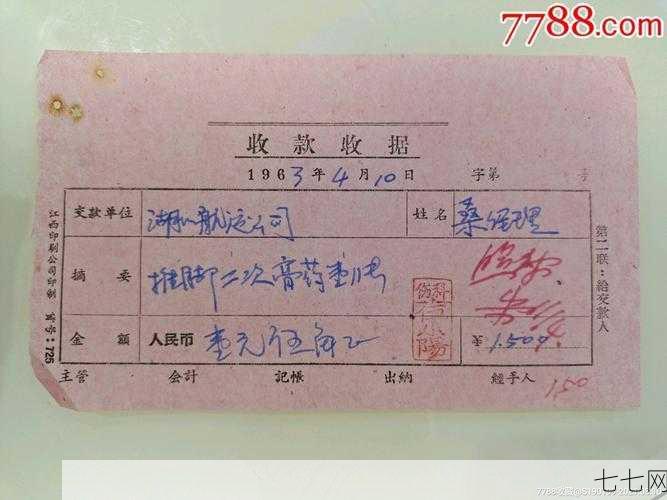 7788.com
收款收据
1963年4月10日 字第 号
交款单位 湖口航运公司 姓名 桑经理
摘要 推脚二次膏药壹张
金额 人民币 壹元伍角正 ¥1.500
主管 会计 记帐 出纳 经手人
150
江西印刷公司印制 货号:725
第二联:给交款人
七七网